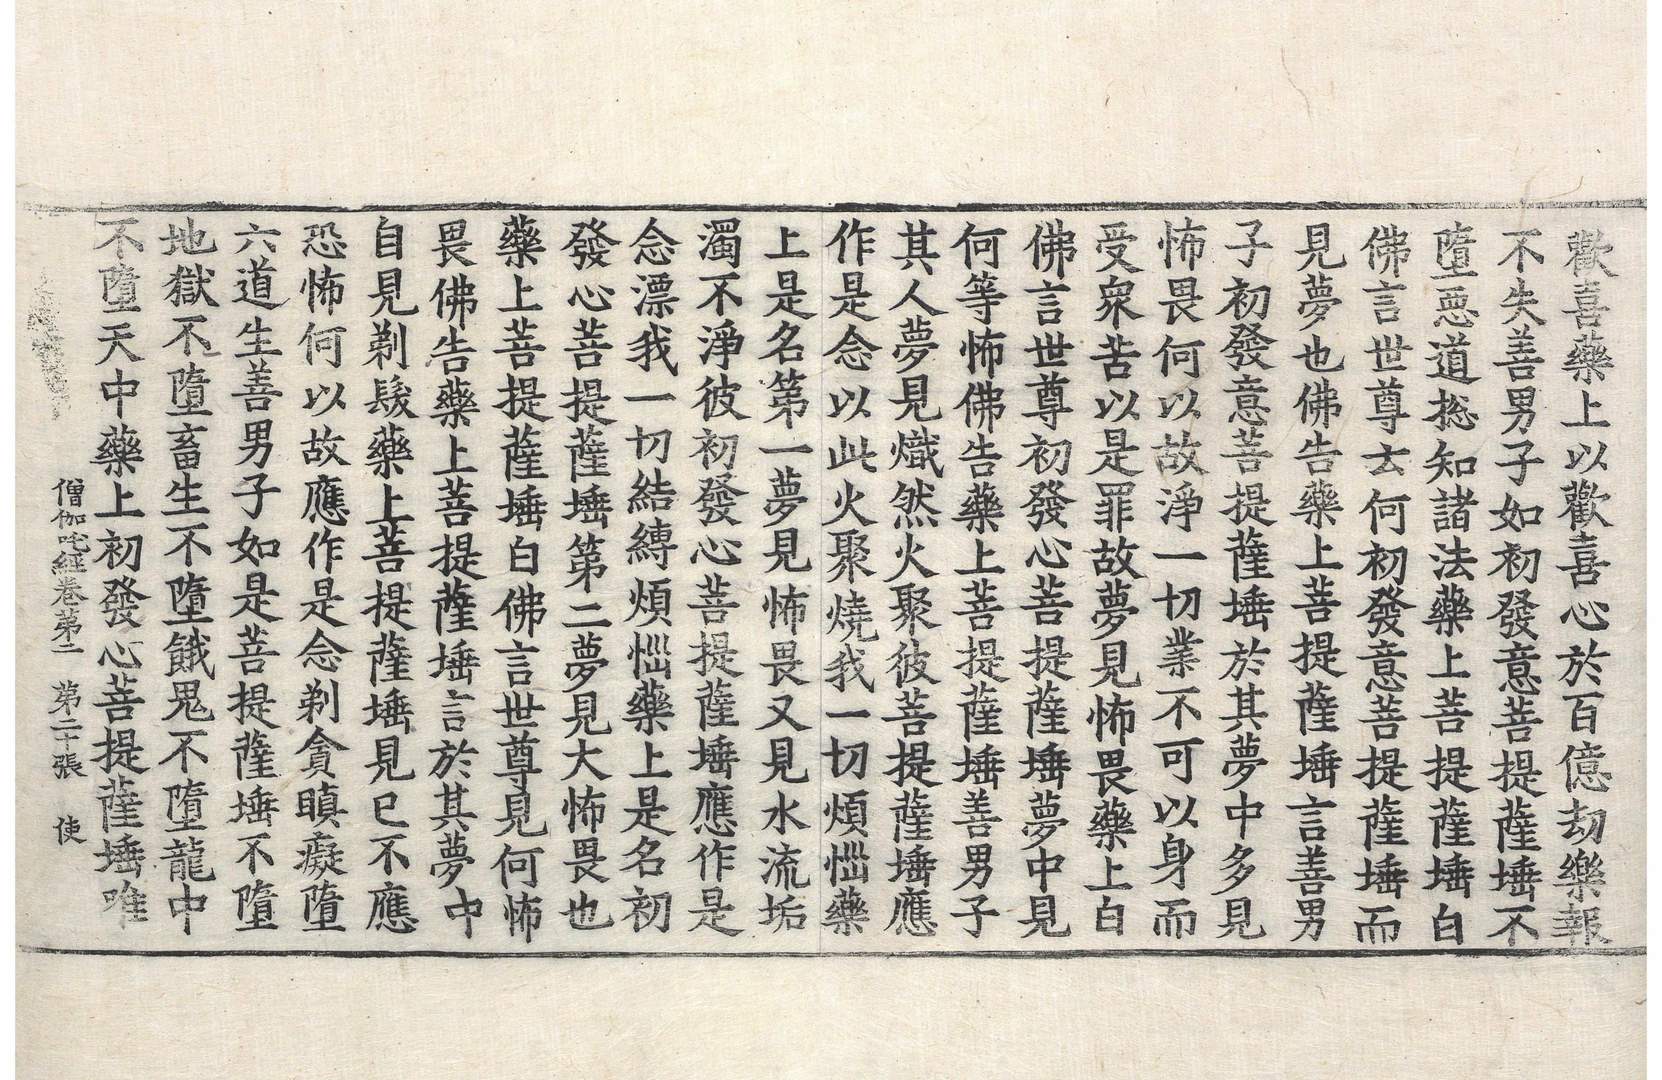 歡喜藥上以歡喜心於百億劫樂報
不失善男子如初發意菩提薩埵不
墮惡道捴知諸法藥上菩提薩埵白
佛言世尊云何初發意菩提薩埵而
見夢也佛告藥上菩提薩埵言善男
子初發意菩提薩埵於其夢中多見
怖畏何以故淨一切業不可以身而
受衆苦以是罪故夢見怖畏藥上白
佛言世尊初發心菩提薩埵夢中見
何等怖佛告藥上菩提薩埵善男子
其人夢見熾然火聚彼菩提薩埵應
作是念以此火聚燒我一切煩惱藥
上是名第一夢見怖畏又見水流垢
濁不淨彼初發心菩提薩埵應作是
念漂我一切結縛煩惱藥上是名初
發心菩提薩埵第二夢見大怖畏也
藥上菩提薩埵白佛言世尊見何怖
畏佛告藥上菩提薩埵言於其夢中
自見剃髮藥上菩提薩埵見已不應
恐怖何以故應作是念剃貪瞋癡墮
六道生善男子如是菩提薩埵不墮
地獄不墮畜生不墮餓鬼不墮龍中
不墮天中藥上初發心菩提薩埵唯
僧伽吒経卷第二 第二十張 使